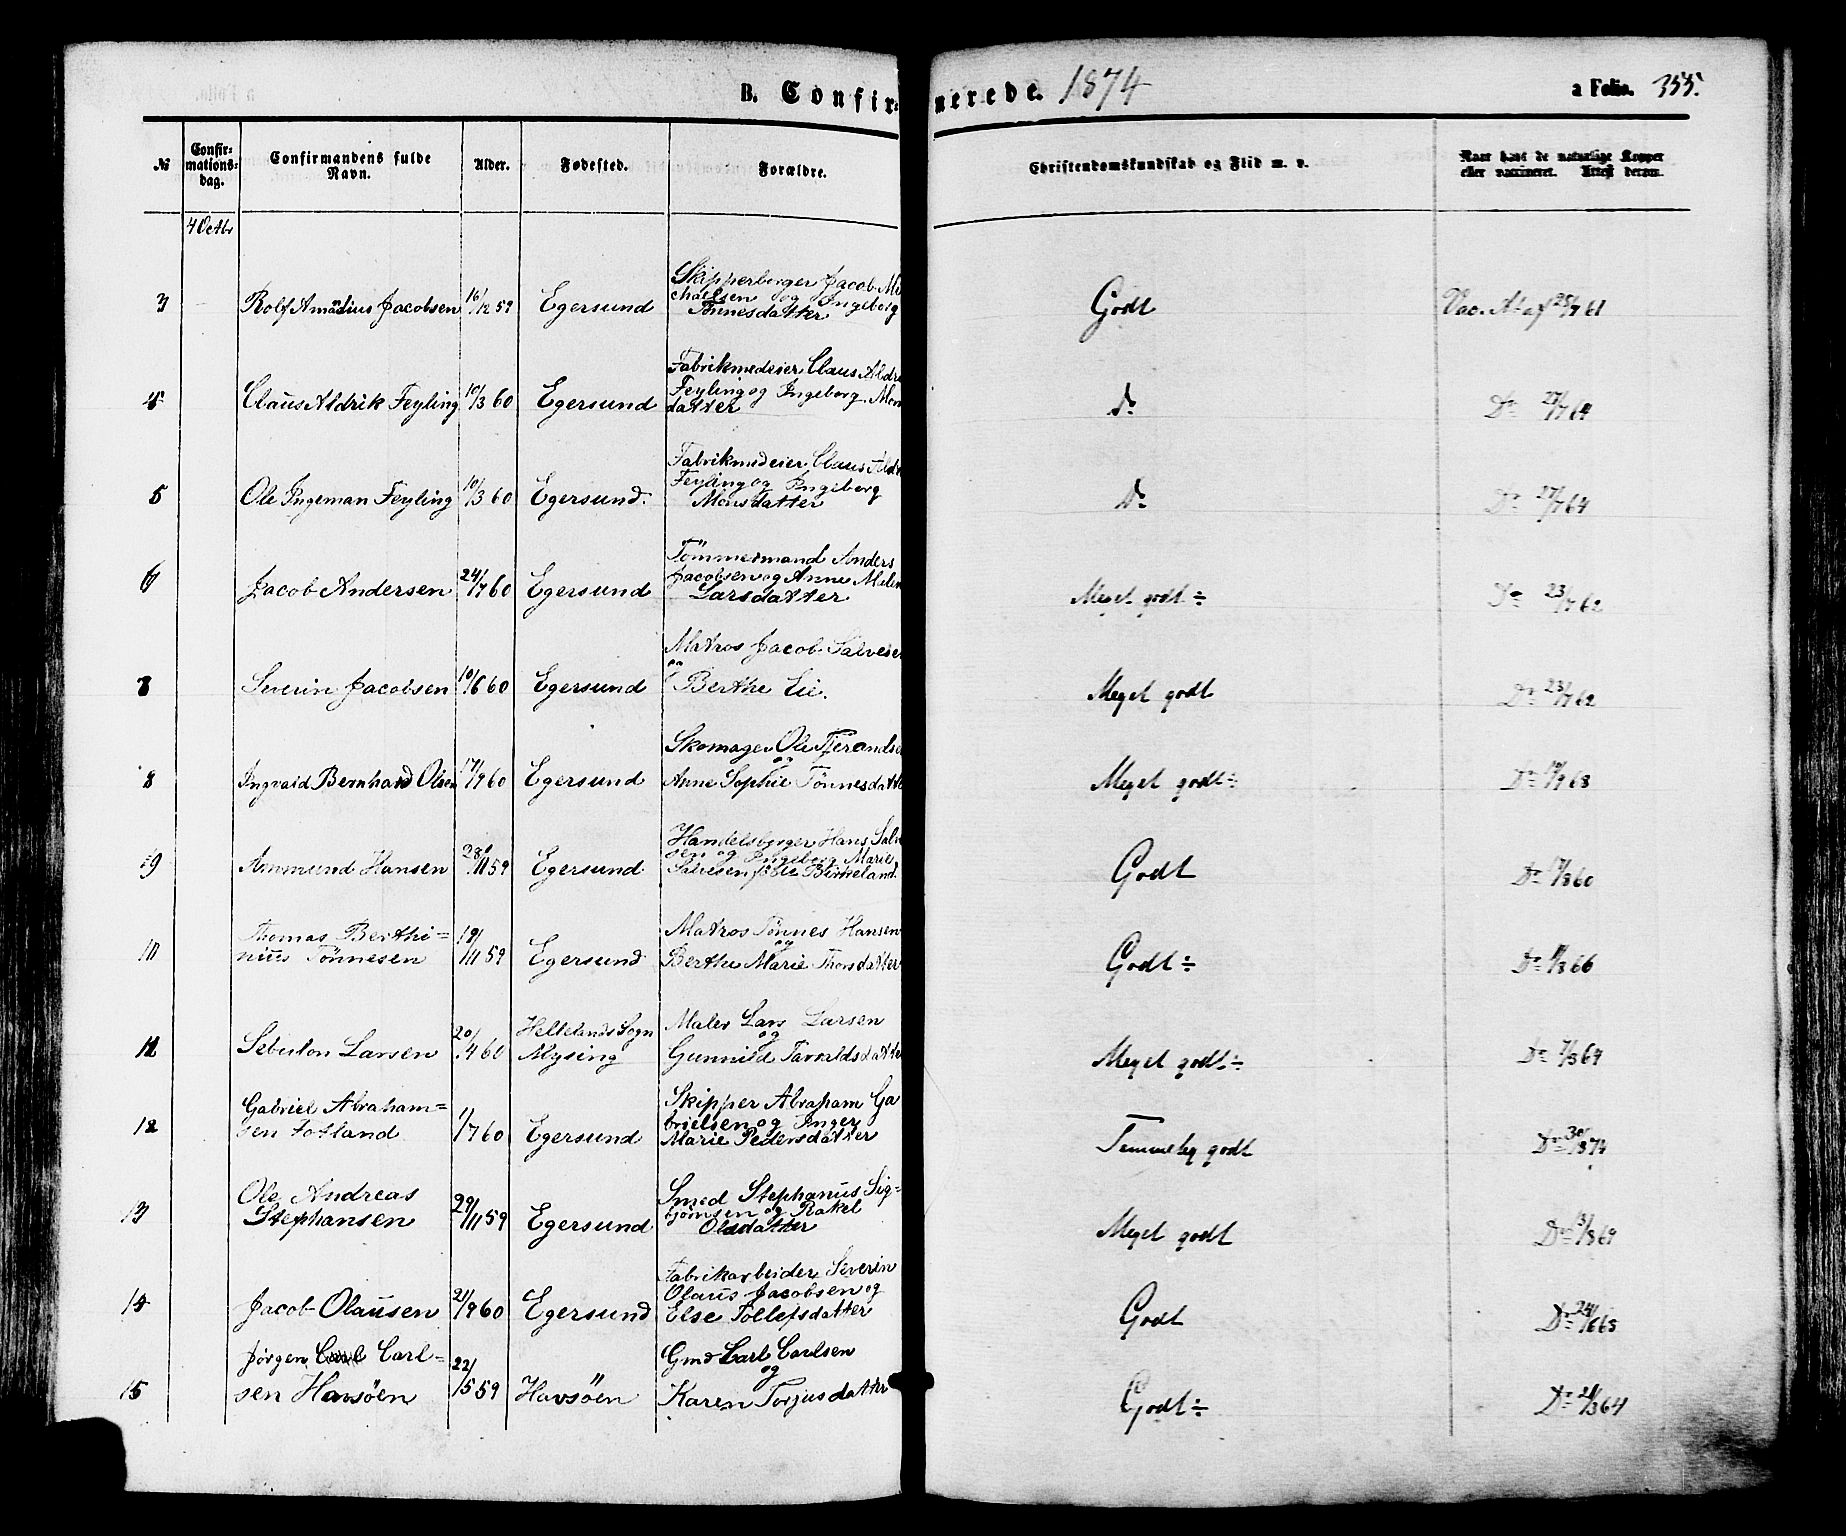 B. Confirmerede. 1874
a Folio. 355.
№ Confir-mations-dag. Confirmandens fulde Navn. Alder. Fødested. Forældre. Christendomskundskab og Flid m. v. Naar havt de naturlige Kopper eller vaccineret. Attest derom.
4 Octbr
3 Rolf Amadius Jacobsen 16/12 59 Egersund Skipperborger Jacob Mi
chaelsen og Ingeborg
Tønnesdatter Godt Vac. Atai 25/7 61
4 Claus Aldrik Feyling 10/3 60 Egersund Fabrikmedeier Claus Aldr
Feyling og Ingeborg Mon
datter Do Do 27/7 64
5 Ole Ingeman Feyling 10/3 60 Egersund. Fabrikmedeier Claus Ald
Feyling og Ingeborg
Monsdatter Do Do 27/7 64
6 Jacob Andersen 24/7 60 Egersund Tömmermand Anders
Jacobsen og Anne Malen
Larsdatter Meget godt ÷ Do 23/7 62
Severin Jacobsen 10/6 60 Egersund Matros Jacob Salvese
og
Berthe Eie. Meget godt Do 23/7 62
8 Ingvald Bernhard Olsen 17/9 60 Egersund Skomager Ole Tjerands
og
Anne Sophie Tönnesdatt Meget godt ÷ Do 68
9 Ammund Hansen 28/11 59 Egersund Handelsborger Hans Salv
sen og Ingeborg Marie
Salvesen födt Birkeland. Godt Do 60
10 Thomas Berthi=
nius Tönnesen 19/11 59 Egersund Matros Tönnes Hansen
og
Berthe Marie Thorsdatter Godt ÷ Do 66
11 Sebulon Larsen 20/4 60 Hellelands Sogn
Mysing Maler Lars Larsen
og
Gunnild Tarvaldsdatte Meget godt ÷ Do 7/8 64
12 Gabriel Abraham=
sen Fotland 1/7 60 Egersund Skipper Abraham Ga
brielsen og Inger
Marie Pedersdatter Temmelig godt Do 30/8 74
13 Ole Andreas
Stephansen 29/11 59 Egersund Smed Stephanus Sig=
björnsen og Rakel
Olsdatter Meget godt Do 69
14 Jacob Olausen 21/9 60 Egersund Fabrikarbeider Severin
Olaus Jacobsen og
Else Tollefsdatter Godt Do 24/6 63
15 Jörgen Carl Carl=
sen Havsöen 22/5 59 Havsöen Gmd Carl Carlsen
og
Karen Torjusdatter Godt ÷ Do 21/3 64